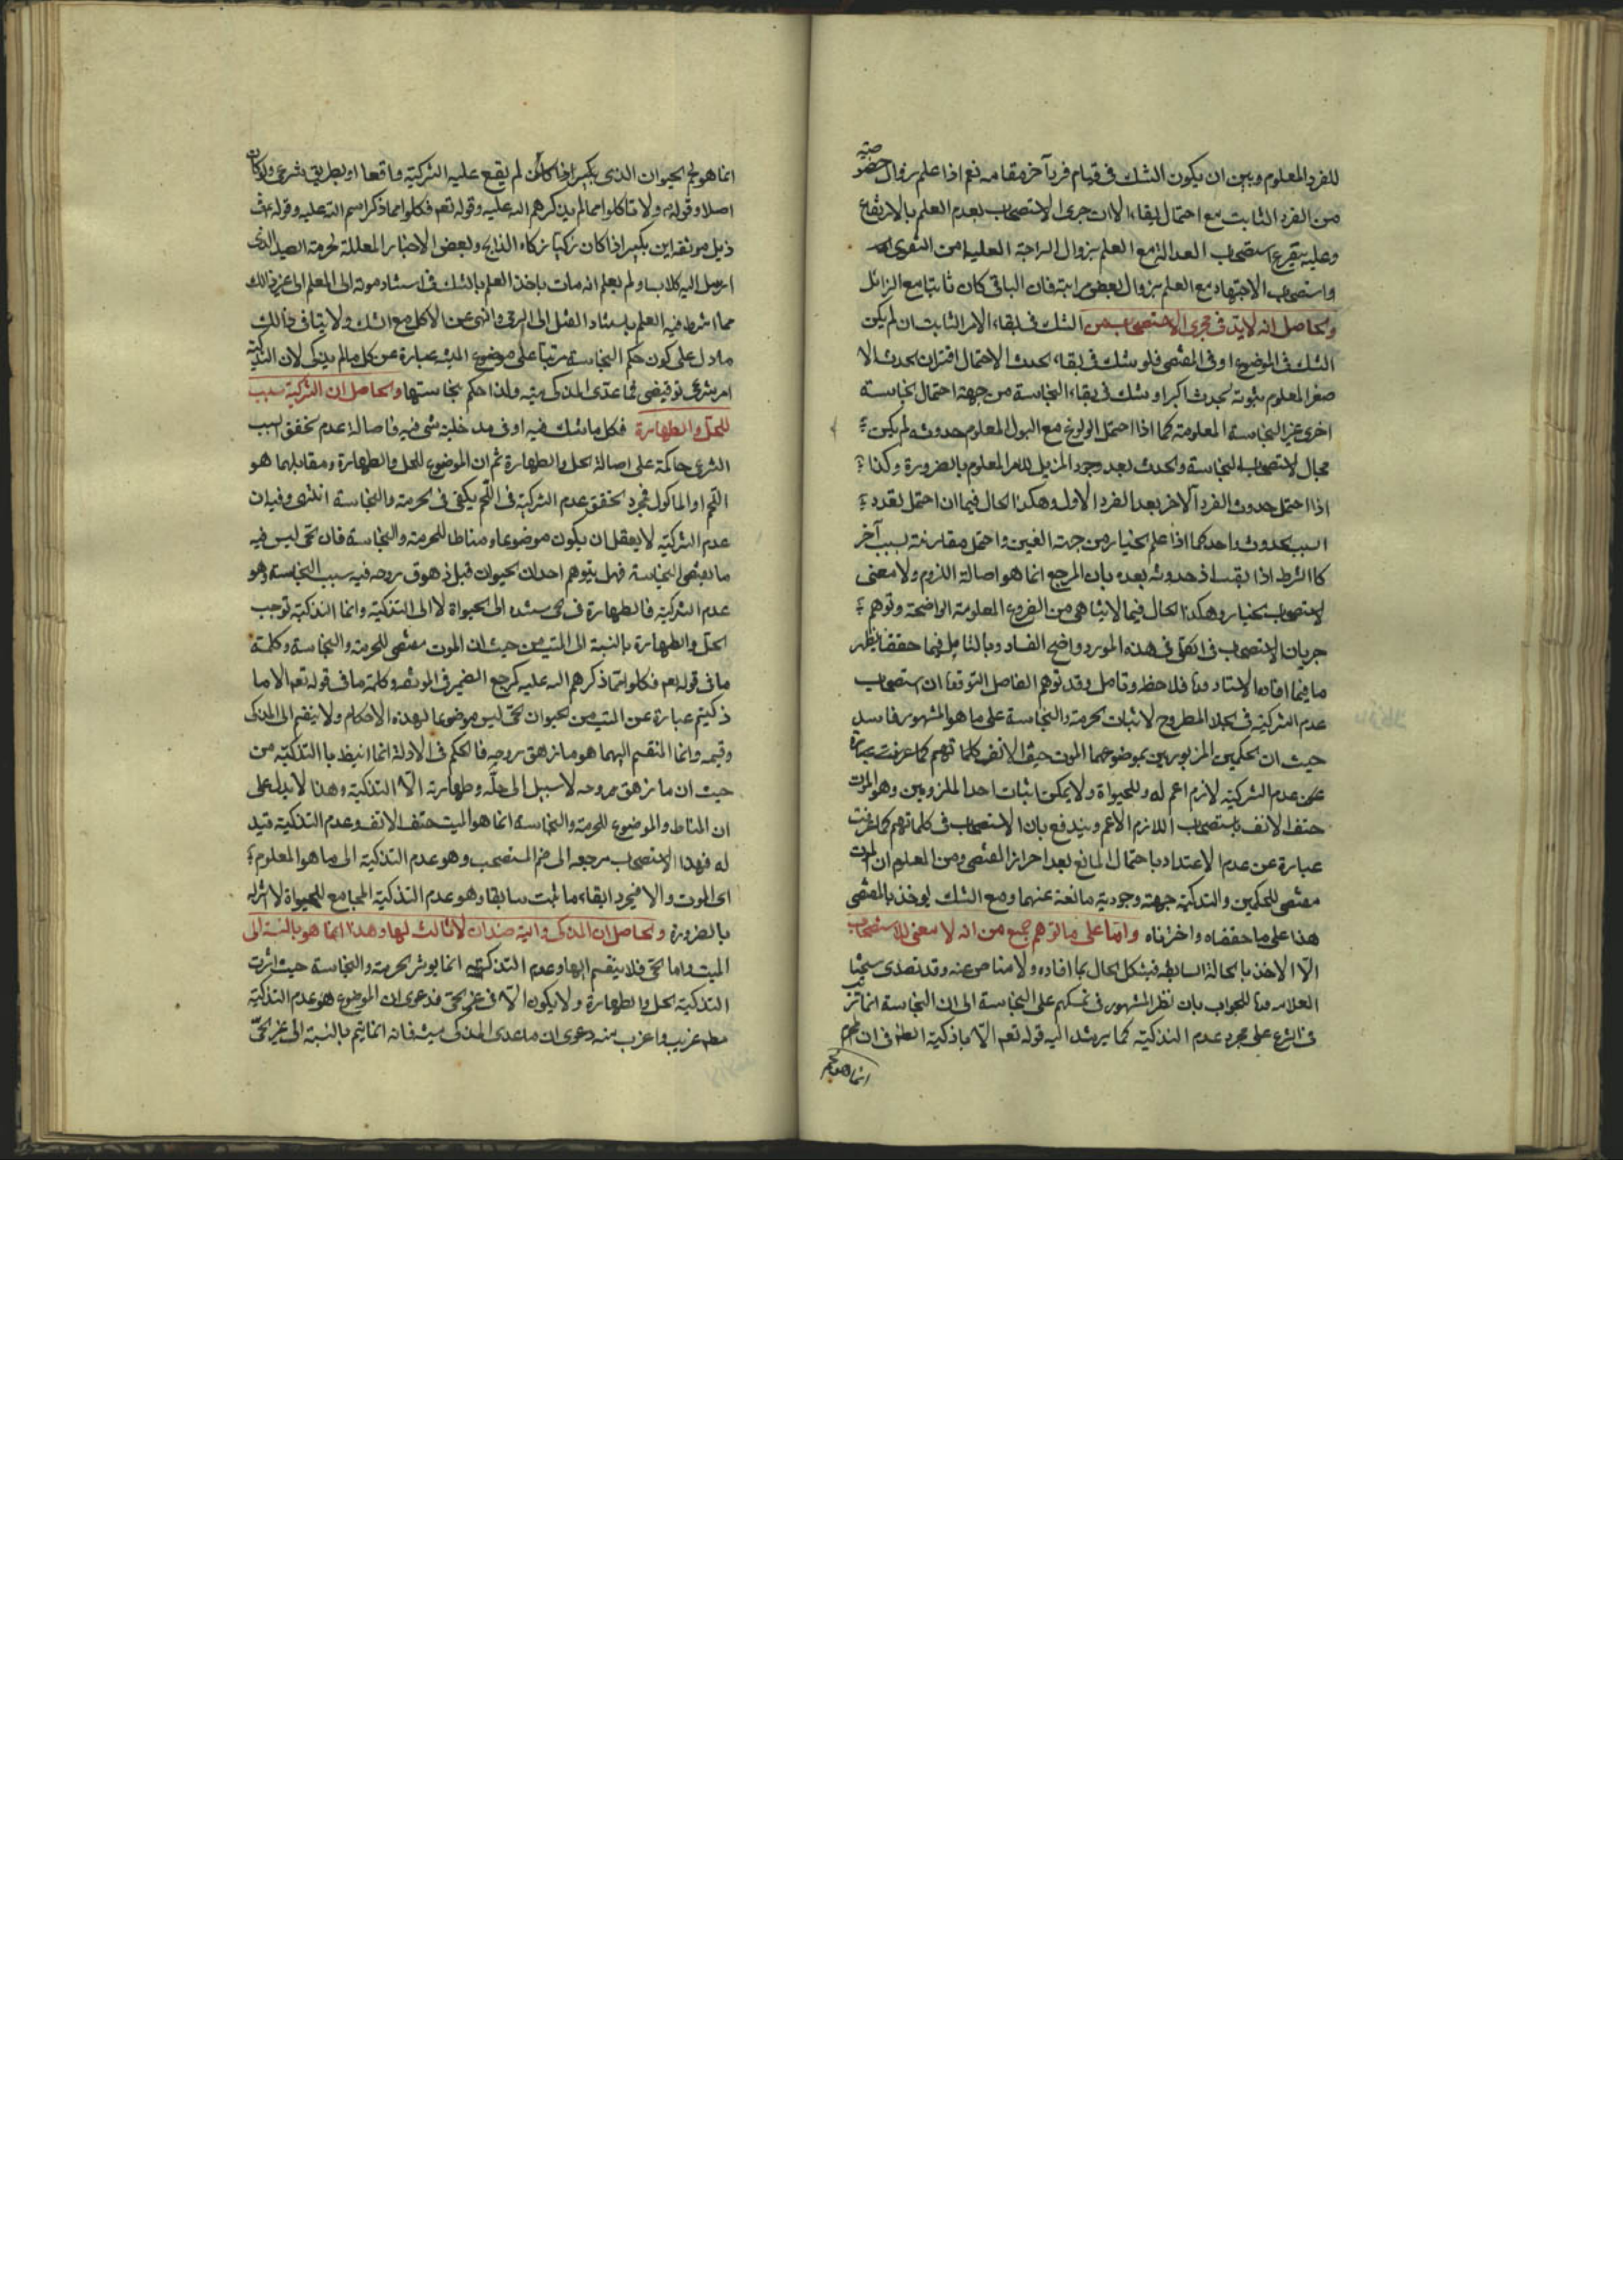 للفرد المعلوم وبين ان يكون الشك فى قيام فرد آخر مقامه نعم اذا علم بزوال خصو
صية
من الفرد الثابت مع احتمال البقاء الا ان جرى الاستصحاب بعدم العلم بالارتفاع
وعليه يتفرع استصحاب العدالة مع العلم بزوال المرتبة العليا من التقوى
واستصحاب الاجتهاد مع العلم بزوال بعض مراتبه فان الباقى كان ثابتا مع الزائل
والحاصل انه لا بد فى مجرى الاستصحاب من الشك فى بقاء الامر الثابت ان لم يكن
الشك فى الموضوع او فى المقتضى فلو شك فى بقاء الحدث الاحتمال اقتران الحدث الا
صغر المعلوم بثبوته بحدث اكبر او شك فى بقاء النجاسة من جهة احتمال نجاسة
اخرى غير النجاسة المعلومة كما اذا احتمل الولوغ مع البول المعلوم حدوثه لم يكن
مجال لاستصحاب النجاسة والحدث بعد وجود المزيل للامر المعلوم بالضرورة وكذا
اذا احتمل حدوث الفرد الآخر بعد الفرد الاول وهكذا الحال فيما ان احتمل تعدد
السبب لحدوث واحد كما اذا علم الخيار من جهة الغبن واحتمل مقارنته لسبب آخر
كالشرط اذا حدوثه بعده بان المرجع انما هو اصالة اللزوم ولا معنى
لاستصحاب الخيار وهكذا الحال فيما لا يتناهى من الفروع المعلومة الواضحة وتوهم
جريان الاستصحاب فى الكلى فى هذه الموارد واضح الفساد وبالتامل فيما حققنا يظهر
ما فيما افاده الاستاد فلاحظ وتامل وقد توهم الفاضل التونى ان استصحاب
عدم التذكية فى الجلد المطروح لاثبات الحرمة والنجاسة على ما هو المشهور فاسد
حيث ان الحكمين المزبورين موضوعهما الموت حتف الانف كلماتهم كما عرفت عبارة
عن عدم التذكية لازم اعم له وللحيوة ولا يمكن اثبات احد الملزومين وهو الموت
حتف الانف باستصحاب اللازم الاعم ويندفع بان الاستصحاب فى كلماتهم كما عرفت
عبارة عن عدم الاعتداد باحتمال المانع بعد احراز المقتضى ومن المعلوم ان الموت
مقتضى للحكمين والتذكية جهة وجودية مانعة عنهما ومع الشك يوخذ بالمقتضى
هذا على ما حققناه واخترناه واما على ما توهم جمع من انه لا معنى للاستصحاب
الا الاخذ بالحالة السابقة فيشكل الحال بما افاده ولا مناص عنه وقد تصدى شيخنا
العلامة للجواب بان نظر المشهور فى تمسكهم على النجاسة الى ان النجاسة انما تر
تب
فى الشرع على مجرد عدم التذكية كما يرشد اليه قوله تعم الا ما ذكيتم الظ فى ان المحرم
انما هو لحم
انما هو لحم الحيوان الذى لم يقع عليه التذكية واقعا او بطريق شرعى ولو كان
اصلا وقوله ولا تاكلوا مما لم يذكر اسم الله عليه وقوله تعم فكلوا مما ذكر اسم الله عليه وقوله فى
ذيل موثقة ابن بكير اذا كان ذكيا ذكاه الذابح وبعض الاخبار المعللة لحرمة الصيد الذى
ارسل اليه كلاب ولم يعلم انه مات باخذ المعلم بالشك فى استناد موته الى المعلم الى غير ذلك
مما اشترط فيه العلم باستناد القتل الى الرمى والنهى عن الاكل مع الشك ولا ينافى ذلك
ما دل على كون حكم النجاسة مرتبا على موضوع الميتة عبارة عن كل ما لم يذك لان التذكية
امر شرعى توقيفى فما عدى المذكى ميتة ولذا حكم بنجاستها والحاصل ان التذكية سبب
للحل والطهارة فكل ما شك فيه او فى مدخلية شىء فيه فاصالة عدم تحقق السبب
الشرعى حاكمة على اصالة الحل والطهارة ثم ان الموضوع للحل والطهارة ومقابلهما هو
اللحم او الماكول فمجرد تحقق عدم التذكية فى اللحم يكفى فى الحرمة والنجاسة انتهى وفيه ان
عدم التذكية لا يعقل ان يكون موضوعا ومناطا للحرمة والنجاسة فان الحى ليس فيه
ما يقتضى النجاسة فهل يتوهم احد ان الحيوان قبل زهوق روحه فيه سبب النجاسة وهو
عدم التذكية فالطهارة فى الحى مستنده الى الحيوة لا الى التذكية وانما التذكية توجب
الحل والطهارة بالنسبة الى الميت من حيث ان الموت مقتضى للحرمة والنجاسة وكلمة
ما فى قوله تعم فكلوا مما ذكر اسم الله عليه كمرجع الضمير فى الموثق وكلمة ما فى قوله تعم الا ما
ذكيتم عبارة عن الميت من الحيوان الحى ليس موضوعا لهذه الاحكام ولا ينقسم الى المذكى
وقسيمه وانما المنقسم اليهما هو ما زهق روحه فالحكم فى الادلة انما انيط بالتذكية من
حيث ان ما زهق روحه لا سبيل الى حله وطهارته الا التذكية وهذا لا يدل على
ان المناط والموضوع للحرمة والنجاسة انما هو الميت حتف الانف وعدم التذكية قيد
له فهذا الاستصحاب مرجعه الى ضم المستصحب وهو عدم التذكية الى ما هو المعلوم
اى الموت والا فمجرد ابقاء ما ثبت سابقا وهو عدم التذكية المجامع للحيوة لا اثر له
بالضرورة والحاصل ان المذكى والميتة ضدان لا ثالث لهما وهذا انما هو بالنسبة الى
الميت واما الحى فلا ينقسم اليهما وعدم التذكية انما يوثر الحرمة والنجاسة حيث اثرت
التذكية الحل والطهارة ولا يكون الا فى غير الحى فدعوى ان الموضوع هو عدم التذكية
مط غريب واغرب منه دعوى ان ما عدى المذكى ميتة فانه انما يتم بالنسبة الى غير الحى